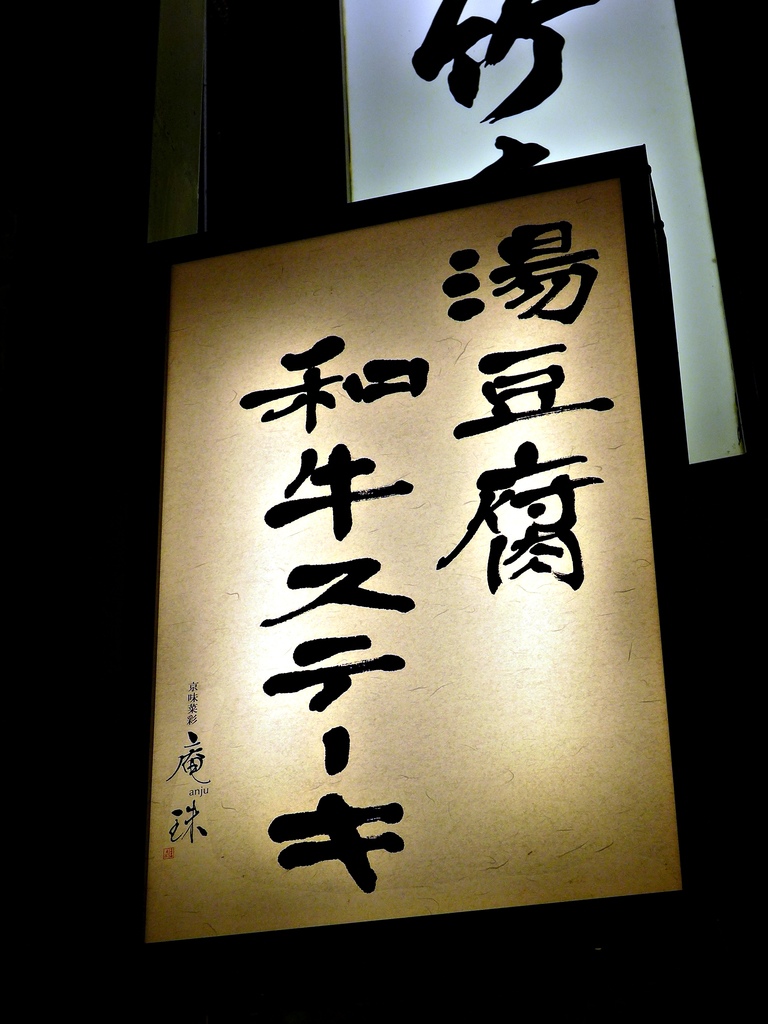 竹
湯豆腐
和牛ステーキ
京味菜彩
庵
anju
珠